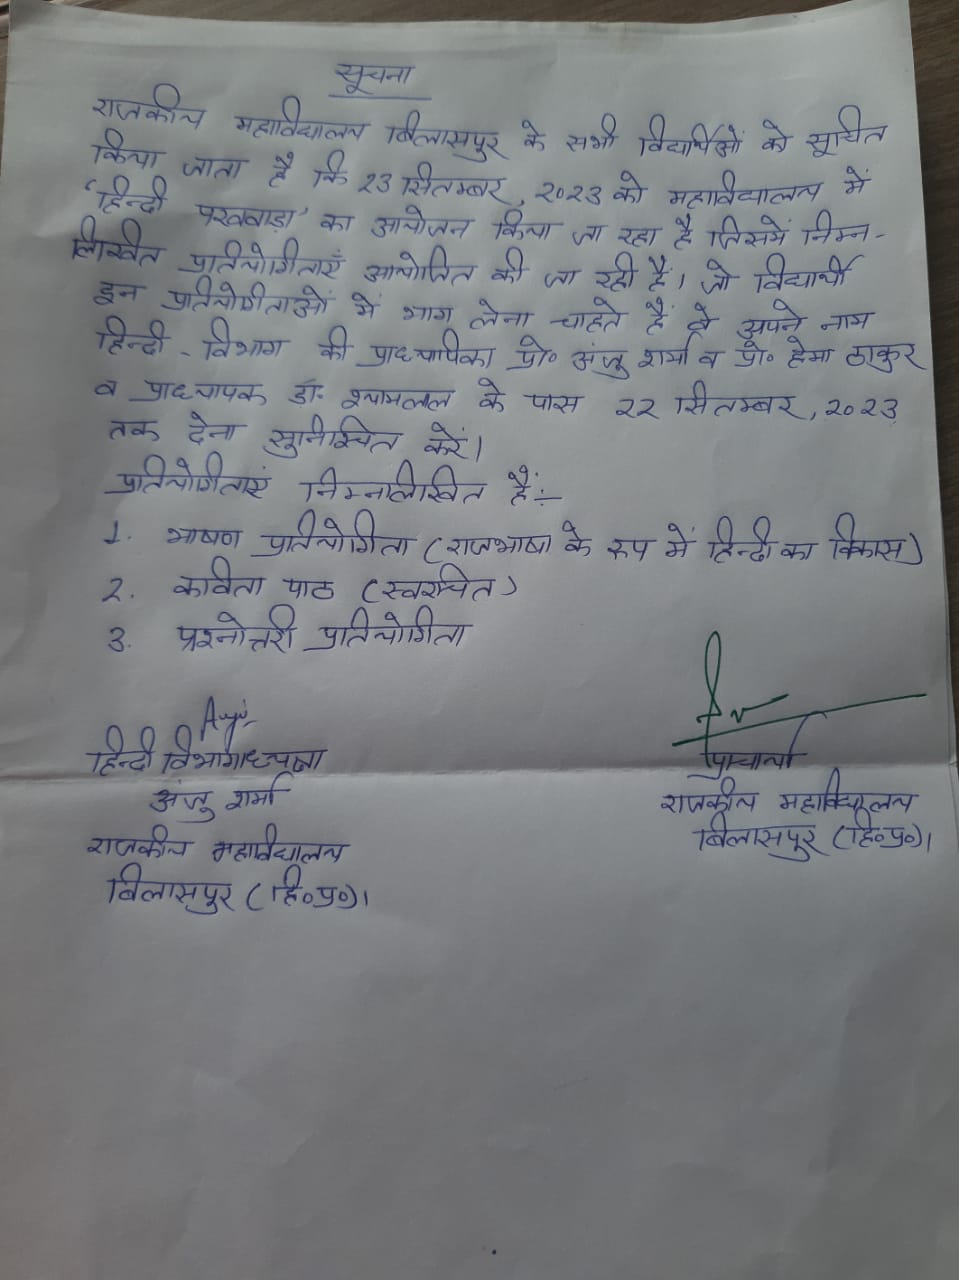 सूचना
राजकीय महाविद्यालय बिलासपुर के सभी विद्यार्थीओं को सूचित
किया जाता है कि 23 सितम्बर, 2023 को महाविद्यालय में
'हिन्दी पखवाड़ा' का आयोजन किया जा रहा है जिसमें निम्न-
लिखित प्रतियोगिताएं आयोजित की जा रही हैं। जो विद्यार्थी
इन प्रतियोगीताओं में भाग लेना चाहते हैं वे अपने नाम
हिन्दी - विभाग की प्राध्यापिका प्रो॰ अंजु शर्मा व प्रो॰ हेमा ठाकुर
व प्राध्यापक डॉ॰ श्यामलाल के पास 22 सितम्बर, 2023
तक देना सुनिश्चित करें।
प्रतियोगीताएं निम्नलिखित हैं:-
1. भाषण प्रतियोगिता (राजभाषा के रूप में हिन्दी का विकास)
2. कविता पाठ (स्वरचित)
3. प्रश्नोत्तरी प्रतियोगीता
हिन्दी विभागाध्यक्षा
अंजु शर्मा
राजकीय महाविद्यालय
बिलासपुर (हि॰प्र॰)।
प्राचार्या
राजकीय महाविद्यालय
बिलासपुर (हि॰प्र॰)।